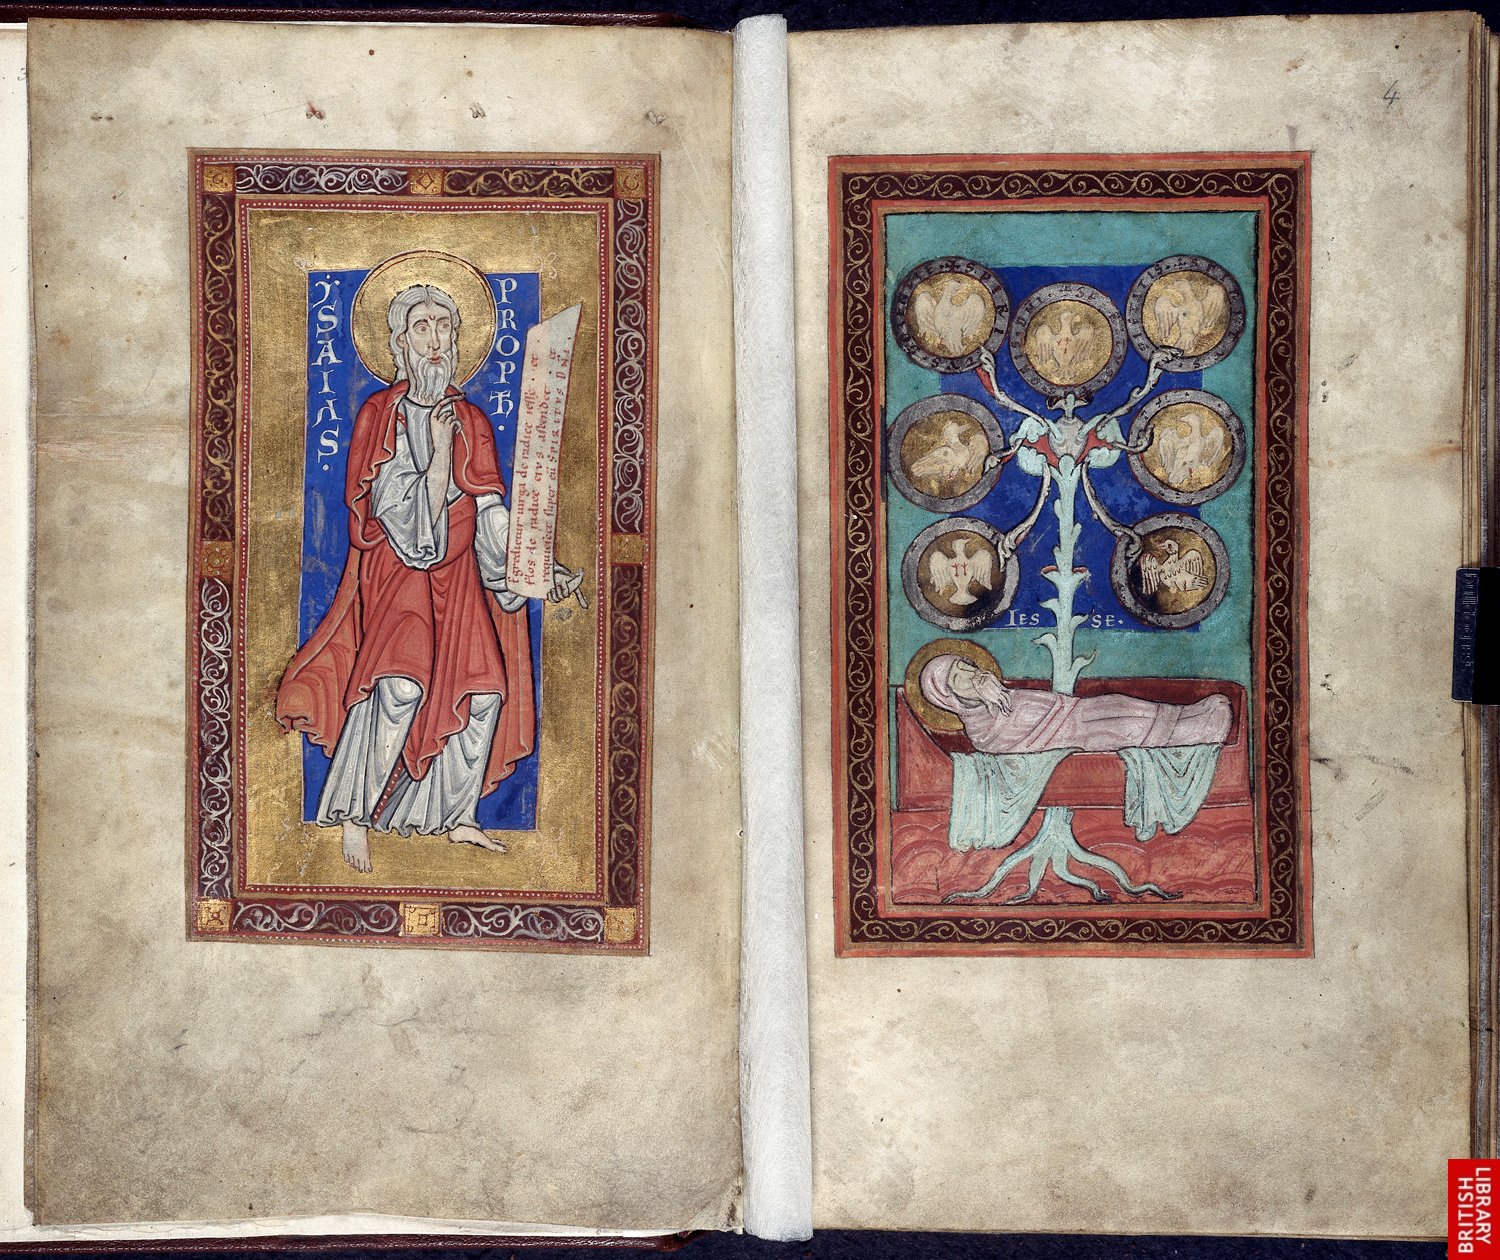 ẎSAIAS.
PROPħ.
Egredietur uirga de radice iesse . et
flos de radice eius . ascendet . et
requiescet super eū SPIRITVS DNI .
4
IES SE.
BRITISH
LIBRARY